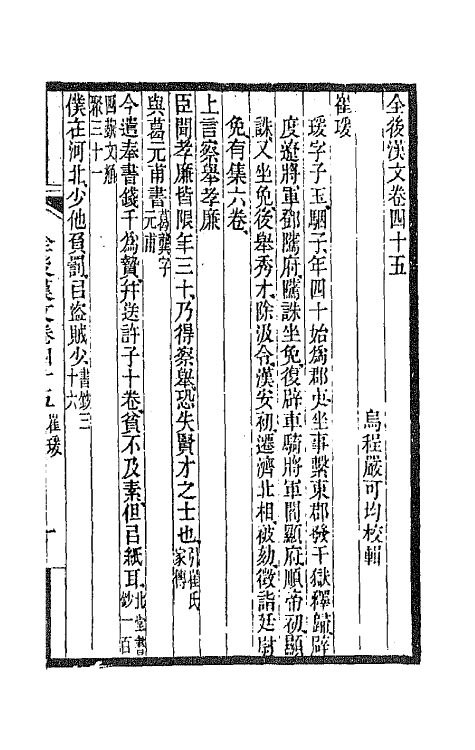 全後漢文卷四十五
烏程嚴可均校輯
崔瑗
瑗字子玉駰子年四十始爲郡吏坐事繫東郡發干獄釋歸辟
度遼將軍鄧騭府騭誅坐免復辟車騎將軍閻顯府順帝初顯
誅又坐免後舉秀才除汲令漢安初遷濟北相被劾徵詣廷尉
免有集六卷
上言察舉孝廉
臣聞孝廉皆限年三十乃得察舉恐失賢才之士也引崔氏家傳
與葛元甫書葛龔字元甫
今遣奉書錢千爲贄幷送許子十卷貧不及素但㠯紙耳北堂書鈔一百
四藝文類聚三十一
僕在河北少他負罰㠯盜賊少書鈔三十六
全後漢文卷四十五 崔瑗 一